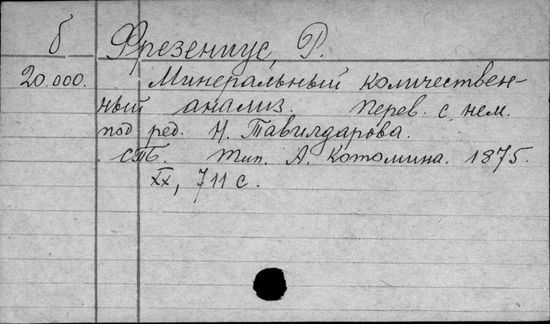 б Фрезениус, Р.
20.000. Минеральный количествен-
ный анализ. Перев. с нем.
под ред. Н. Тавилдарова.
СПБ. Тип. А. Котомина. 1875.
XX, 711 с.